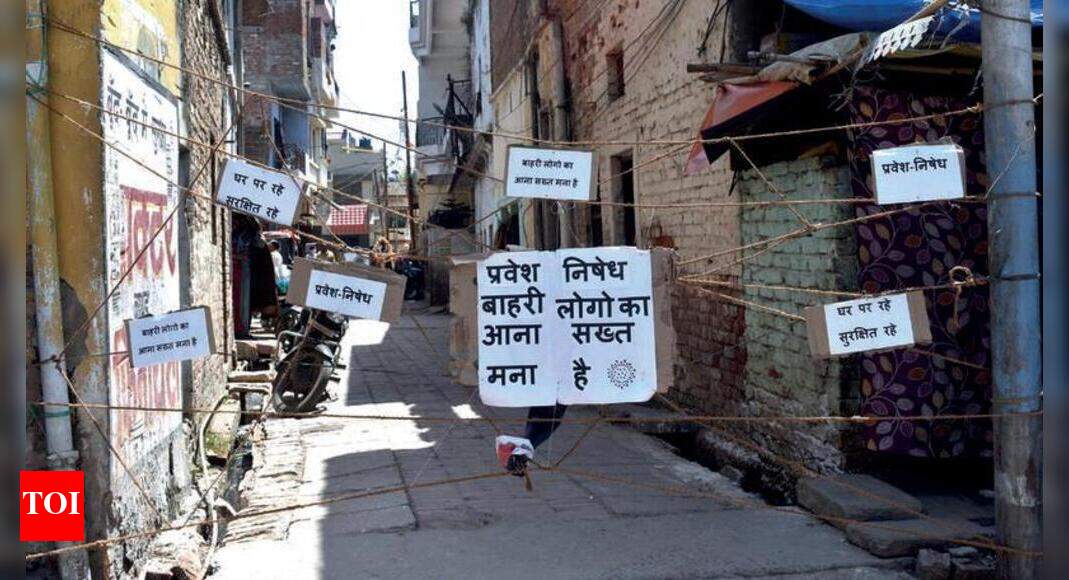 बाहरी लोगो का
आना सख्त मना है
प्रवेश-निषेध
घर पर रहे
सुरक्षित रहे
प्रवेश निषेध
बाहरी लोगो का
आना सख्त
मना है
प्रवेश-निषेध
घर पर रहे
सुरक्षित रहे
बाहरी लोगो का
आना सख्त मना है
TOI